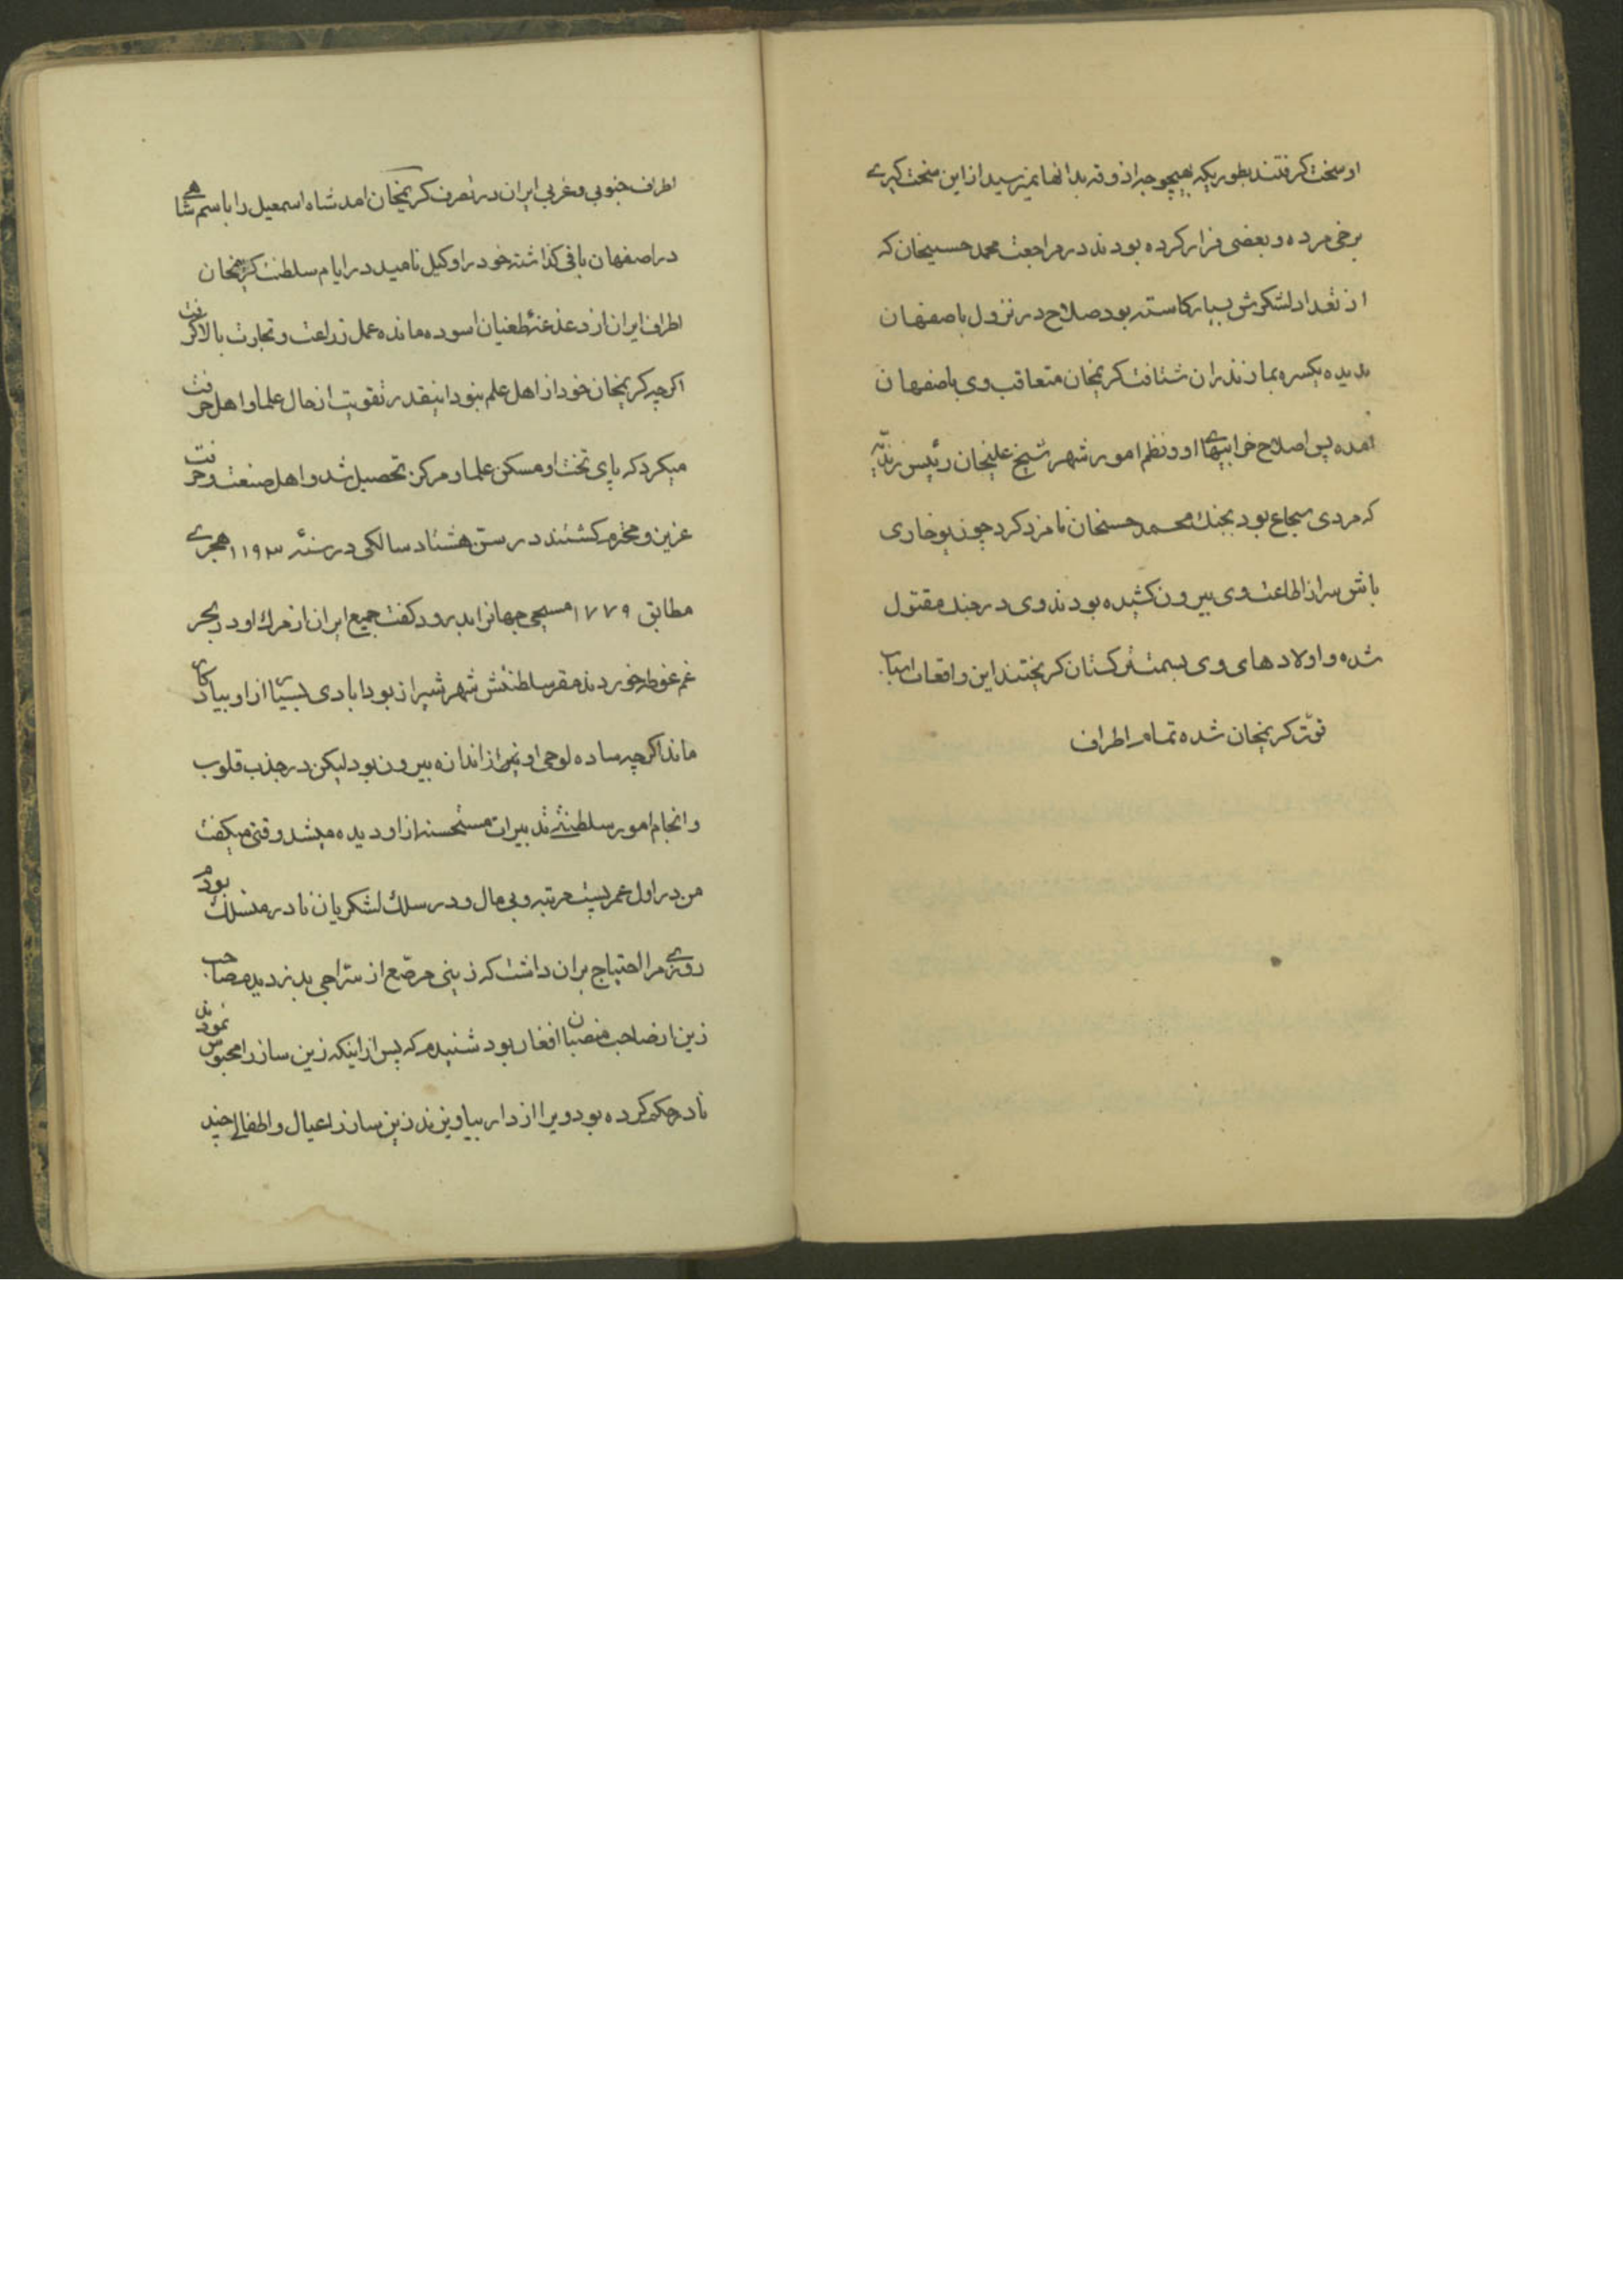 او سخت کرفتند بطوریکه بهیچوجه اذوقه بدانها نمیرسید از این سخت کیرے
برخی مرده و بعضی فرار کرده بودند در مراجعت محمد حسینخان که
از تعداد لشکرش بسیار کاسته بود صلاح در نزول باصفهان
ندیده یکسره بمازندران شتافت کریمخان متعاقب وی باصفهان
امده پس اصلاح خرابیهاے او و نظم امور شهر شیخ علیخان رئیس زندیّه
که مردی شجاع بود بجنك محمد حسنخان نامزد کرد چون یوخاری
باش سر از اطاعت وی بیرون کشیده بودند وی در جنك مقتول
شده و اولادهای وی بسمت ترکستان کریختند این واقعات اسباب
قوّت کریمخان شده تمام اطراف
اطراف جنوبی و غربی ایران در تصرف کریمخان امد شاه اسمعیل را باسم شاهے
در اصفهان باقی کذاشته خود را وکیل نامید در ایام سلطنت کریمخان
اطراف ایران از دغدغۀ طغیان اسوده مانده عمل زراعت و تجارت بالا کرفت
اکرچه کریمخان خود از اهل علم نبود اینقدر تقویت از حال علما و اهل حرفت
میکرد که پای تخت او مسکن علما و مرکز تحصیل شد و اهل صنعت و حرفت
عزیز و محترم کشتند در سن هشتاد سالکی در سنۀ ۱۱۹۳ هجرے
مطابق ۱۷۷۹ مسیحی جهانرا بدرود کفت جمیع ایران از مرك او در بحر
غم غوطه خوردند مقر سلطنتش شهر شیراز بود ابادی بسیار از او بیادکار
ماند اکرچه ساده لوحی او نیز از اندازه بیرون بود لیکن در جذب قلوب
و انجام امور سلطنتے تدبیرات مستحسنه از او دیده میشد وقتی میکفت
من در اول عمر پست مرتبه و بی مال و در سلك لشکریان نادر منسلك بودم
روزے مرا احتیاج بران داشت که زینی مرصّع از سرّاجی بدزدیدم صاحب
زین از صاحب منصبان افغان بود شنیدم که پس از اینکه زین ساز را محبوس نمودند
نادر حکم کرده بود ویرا از دار بیاویزند زین ساز را عیال و اطفالے چند